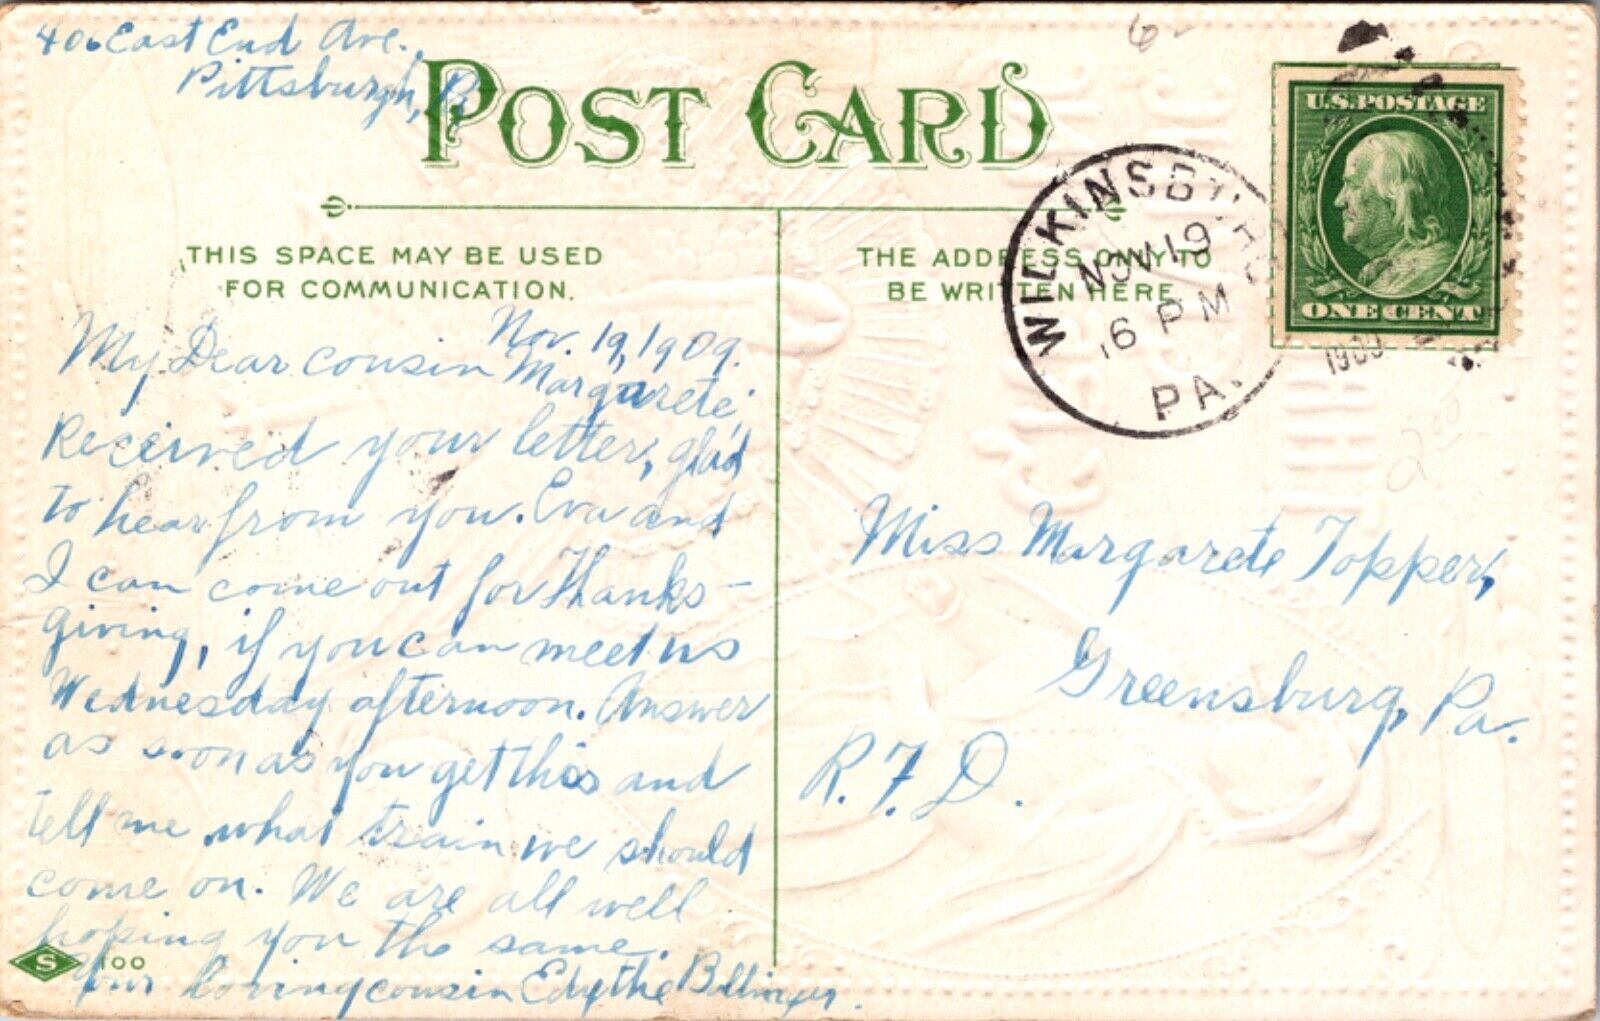 406 East End Ave.
Pittsburgh, Pa
POST CARD
THIS SPACE MAY BE USED
FOR COMMUNICATION.
THE ADDRESS ONLY TO
BE WRITTEN HERE
WILKINSBURG
NOV 19
6 PM
1909
PA.
U.S. POSTAGE
ONE CENT
Nov. 19, 1909.
My Dear Cousin
Margarete,
Received your letter, glad
to hear from you. Eva and
I can come out for Thanks-
giving, if you can meet us
Wednesday afternoon. Answer
as soon as you get this and
tell me what train we should
come on. We are all well
hoping you the same.
Your loving cousin Edythe Bollinger.
S 100
Miss Margarete Topper,
Greensburg, Pa.
R.F.D.
200